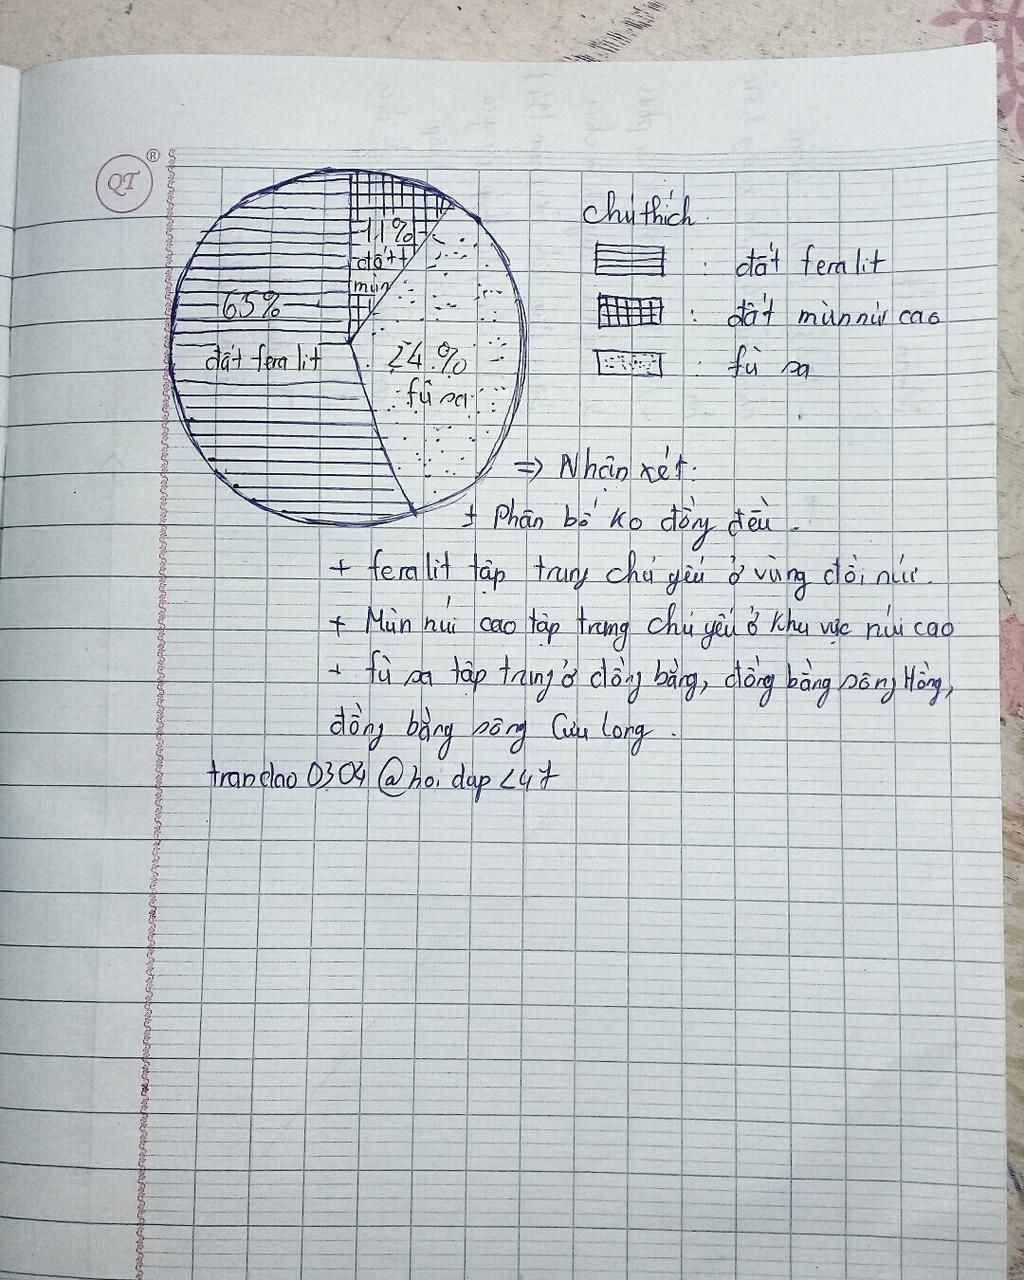 QT ®
11%
đất
mùn
65%
đất feralit
24%
fù sa
chú thích
: đất feralit
: đất mùn núi cao
: fù sa
=> Nhận xét:
+ Phân bố ko đồng đều.
+ feralit tập trung chủ yếu ở vùng đồi núi.
+ Mùn núi cao tập trung chủ yếu ở khu vực núi cao
+ fù sa tập trung ở đồng bằng, đồng bằng sông Hồng,
đồng bằng sông Cửu Long.
trandao0304@hoidap247